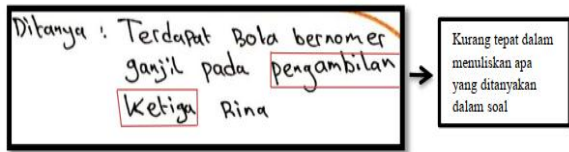 Ditanya : Terdapat Bola bernomer
ganjil pada pengambilan
Ketiga Rina
Kurang tepat dalam
menuliskan apa
yang ditanyakan
dalam soal